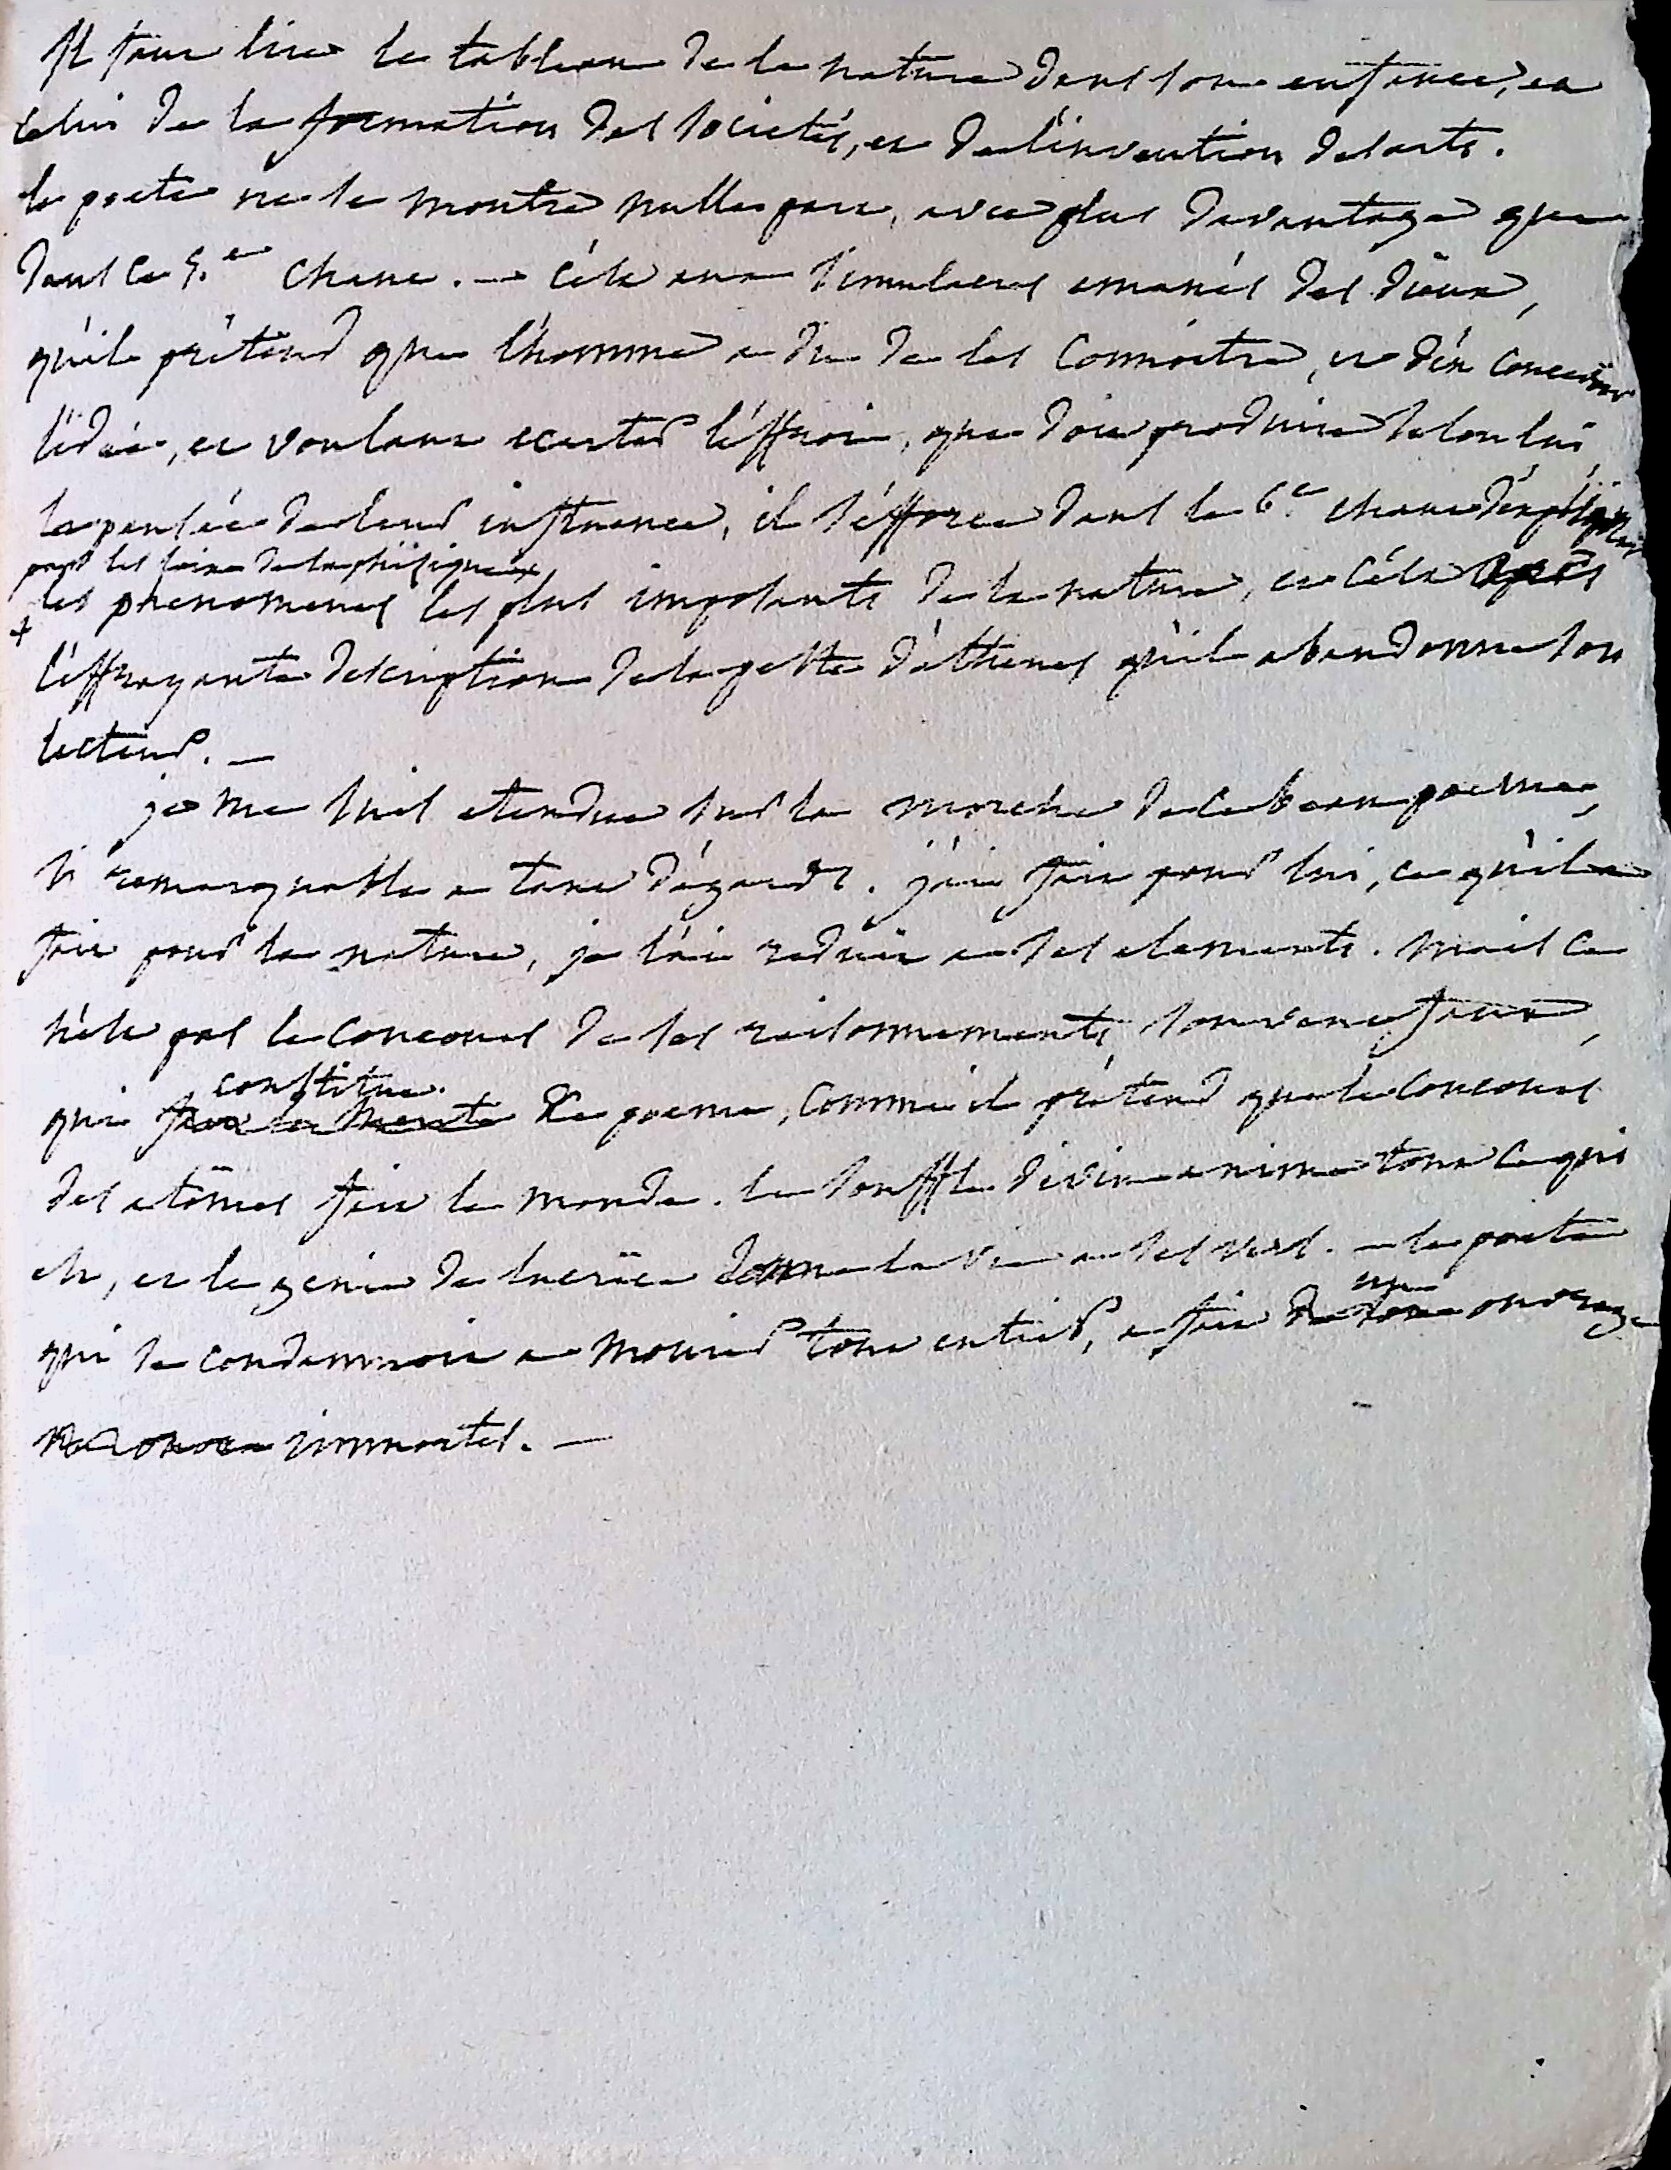 Il faut lire le tableau de la nature dans son enfance, et
celui de la formation des sociétés, et de l'invention des arts.
le poete ne se montre nulle part, avec plus davantage que
dans ce 5.e chant. — c'est aux simulacres emanés des dieux,
qu'il prétend que l'homme a du de les connoitre, et d'en concevoir
l'idée, et voulant ecarter l'éffroi, que doit produire selon lui
la pensée de leur influence, il s'éfforce dans le 6.e chant d'expliquer
par les loix de la phisique x
+ les phenomenes les plus imposants de la nature, et c'est après
l'éffrayante description de la peste d'athenes qu'il abandonne son
lecteur. —
je me suis etendue sur la marche de ce beau poeme,
si remarquable a tant d'égards. j'ai fait pour lui, ce qu'il a
fait pour la nature, je l'ai reduit a ses elements. mais ce
n'est pas le concours de ses raisonnements, souvent faux,
constitue
qui fait le merite ce poeme, comme il prétend que le concours
des atômes fait le monde. le souffle divin anime tout ce qui
est, et le genie de lucrèce donne la vie a ses vers. — le poete
un
qui se condamnoit a mourir tout entier, a fait de son ouvrage
immortel. —